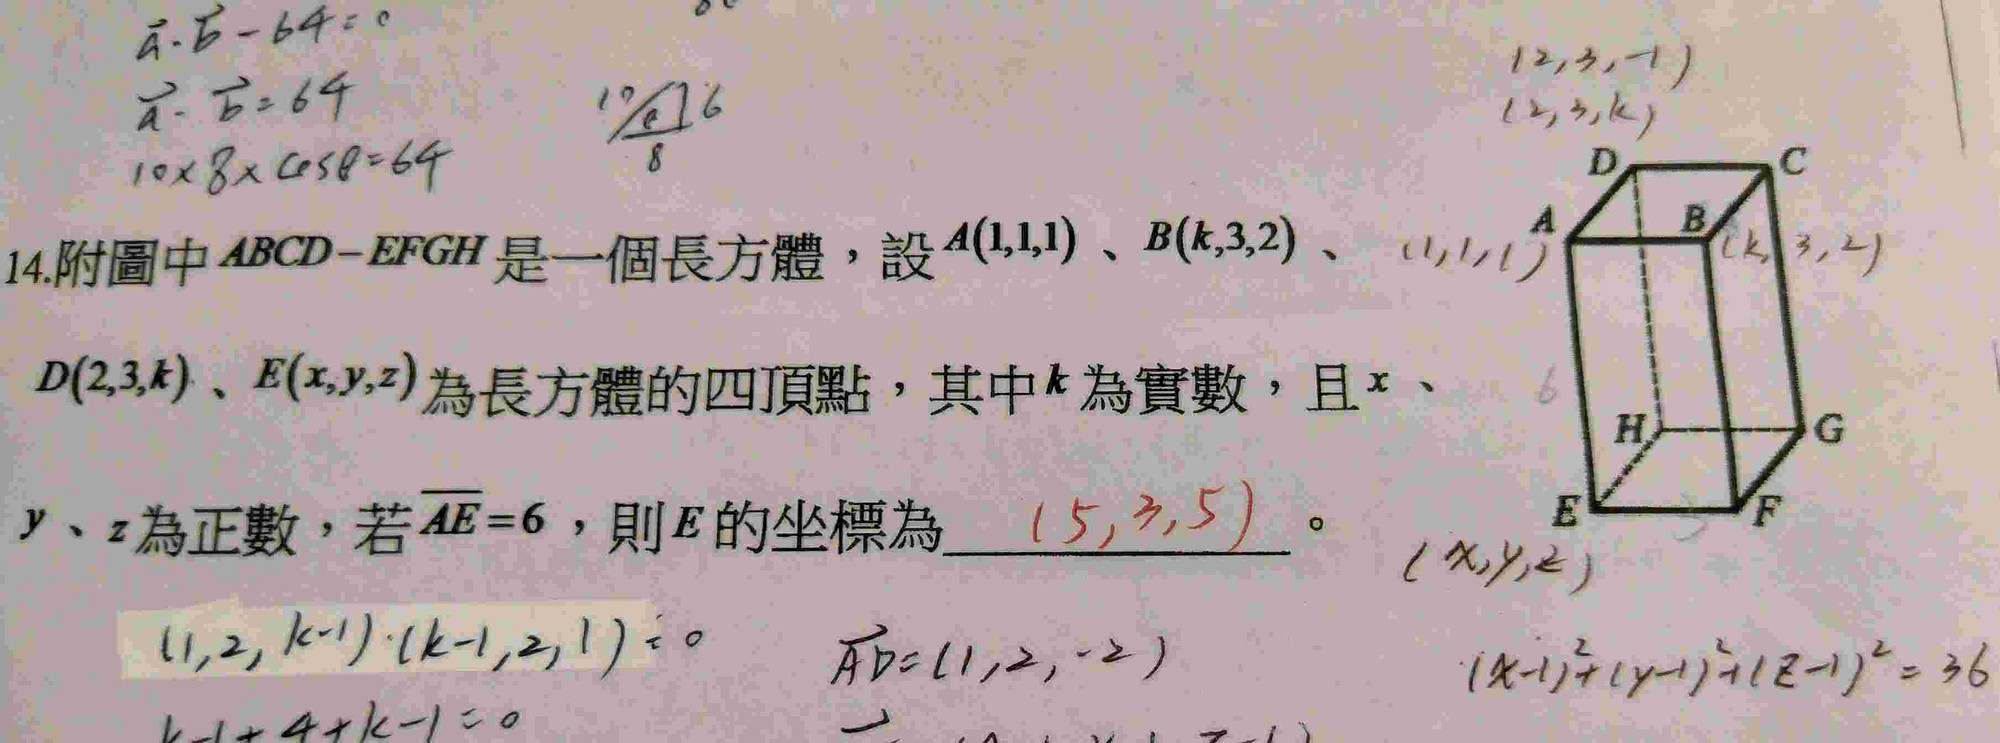 a⃗·b⃗-64=0
a⃗·b⃗=64
10×8×cosθ=64
10 6
8
(2,3,-1)
(2,3,k)
D C
A B
(1,1,1) (k,3,2)
14.附圖中ABCD-EFGH是一個長方體，設A(1,1,1)、B(k,3,2)、
D(2,3,k)、E(x,y,z)為長方體的四頂點，其中k為實數，且x、
6
H G
y、z為正數，若AE=6，則E的坐標為 (5,3,5) 。
E F
(x,y,z)
(1,2,k-1)·(k-1,2,1)=0
AD⃗=(1,2,-2)
(x-1)²+(y-1)²+(z-1)²=36
k-1+4+k-1=0